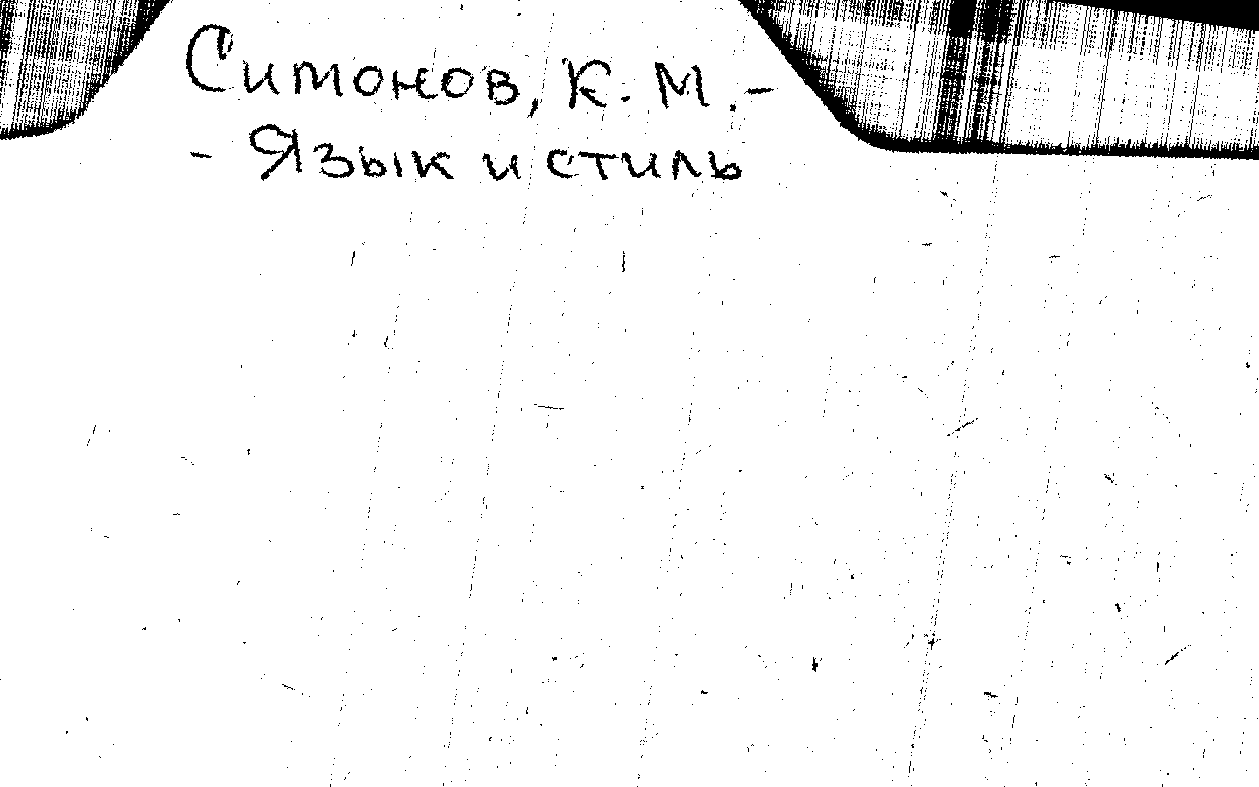 Симонов, К. М.-
- Язык и стиль